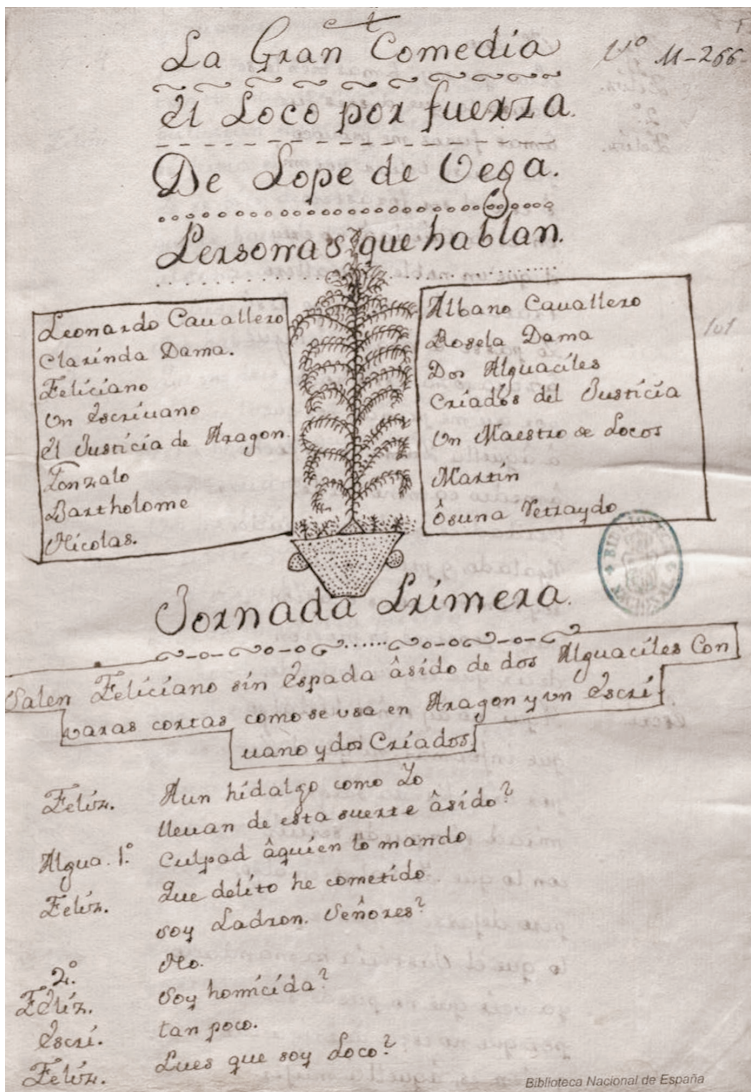 La Gran Comedia
Vº 11-266-
El Loco por fuerza.
De Lope de Vega.
Personas que hablan.
Leonardo Cauallero
Clarinda Dama.
Feliciano
Vn Escriuano
El Justicia de Aragon.
Gonzalo
Bartholome
Nicolas.
Albano Cavallero
Rosela Dama
Dos Alguaciles
Criados del Justicia
Vn Maestro de Locos
Martin
Osuna Vetraydo
101
Jornada Primera.
Salen Feliciano sin Espada âsido de dos Alguaciles Con
varas cortas como se vsa en Aragon y vn Escri
uano y dos Criados
Feliz. Aun hidalgo como Yo
lleuan de esta suerte âsido?
Algua. 1.º Culpad âquien lo mando
Feliz. Que delito he cometido
soy Ladron. Señores?
2.º No.
Feliz. Soy homicida?
Escri. tan poco.
Feliz. Pues que soy Loco?
Biblioteca Nacional de España